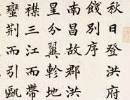 秋日登洪府
餞別序
南昌故郡洪
星分翼軫地
襟三江而帶
蠻荊而引甌